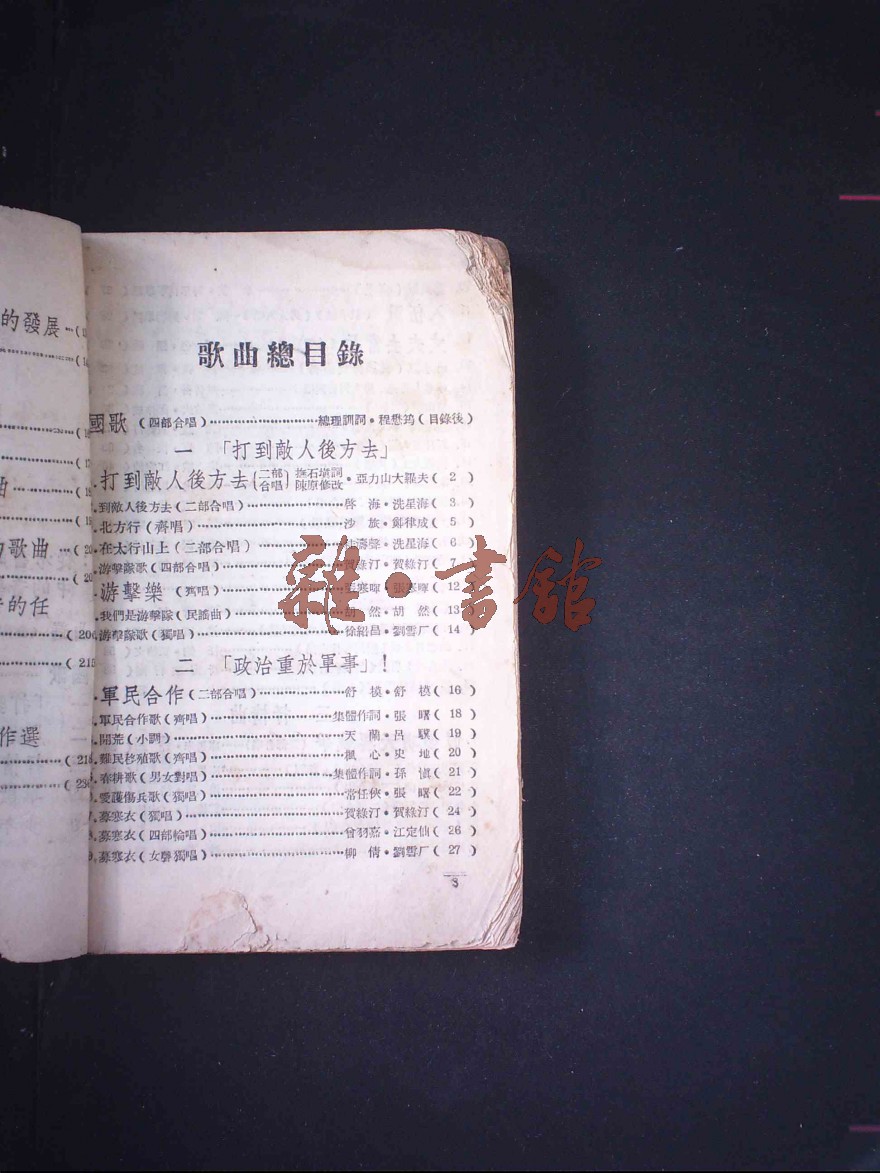 的發展…(1
(14
(1
(17
曲
(18
(19
歌曲…(20
(20
的任
(206
(215
作選
(218
(23
歌曲總目錄
國歌(四部合唱)…總理訓詞·程懋筠(目錄後)
一 「打到敵人後方去」
打到敵人後方去(二部合唱) 詞 陳原修改·亞力山大羅夫(2)
到敵人後方去(二部合唱)…啓海·洗星海(3)
北方行(齊唱)…沙族·鄭律成(5)
在太行山上(二部合唱)…濤聲·洗星海(6)
游擊隊歌(四部合唱)…賀綠汀·賀綠汀(7)
游擊樂(齊唱)…張寒暉·張寒暉(12)
我們是游擊隊(民謠曲)…胡然·胡然(13)
游擊隊歌(獨唱)…徐紹昌·劉雪厂(14)
二 「政治重於軍事」!
軍民合作(二部合唱)…舒模·舒模(16)
軍民合作歌(齊唱)…集體作詞·張曙(18)
開荒(小調)…天蘭·呂驥(19)
難民移殖歌(齊唱)…楓心·史地(20)
春耕歌(男女對唱)…集體作詞·孫愼(21)
愛護傷兵歌(獨唱)…常任俠·張曙(22)
募寒衣(獨唱)…賀綠汀·賀綠汀(24)
募寒衣(四部輪唱)…曾羽嘉·江定仙(26)
募寒衣(女聲獨唱)…柳倩·劉雪厂(27)
3
雜·書館